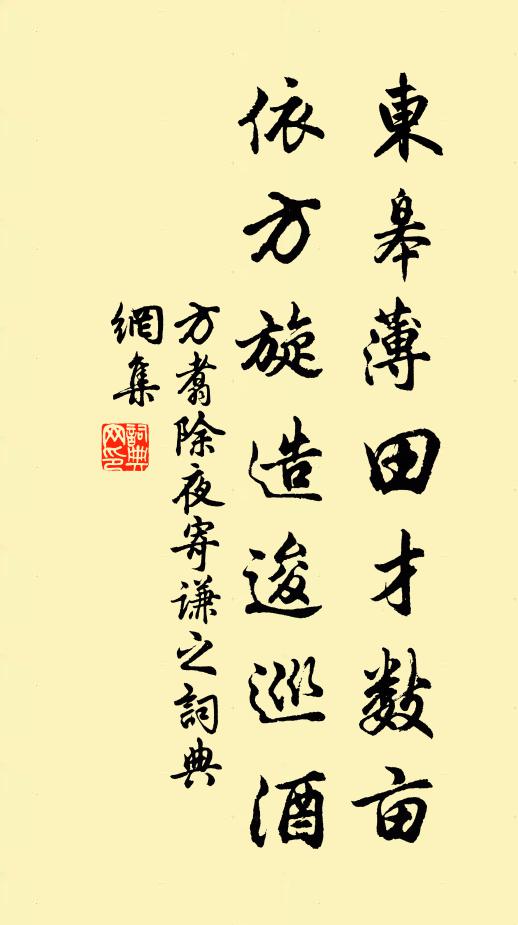 東皋薄田才数亩
依方旋造逡巡酒
方翥除夜寄谦之詞典
網集
詞典網印